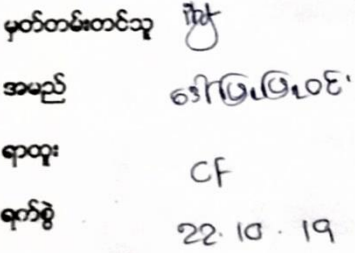 မှတ်တမ်းတင်သူ
အမည် ဒေါ်ဖြူဖြူဝင်း
ရာထူး CF
ရက်စွဲ 22.10.19